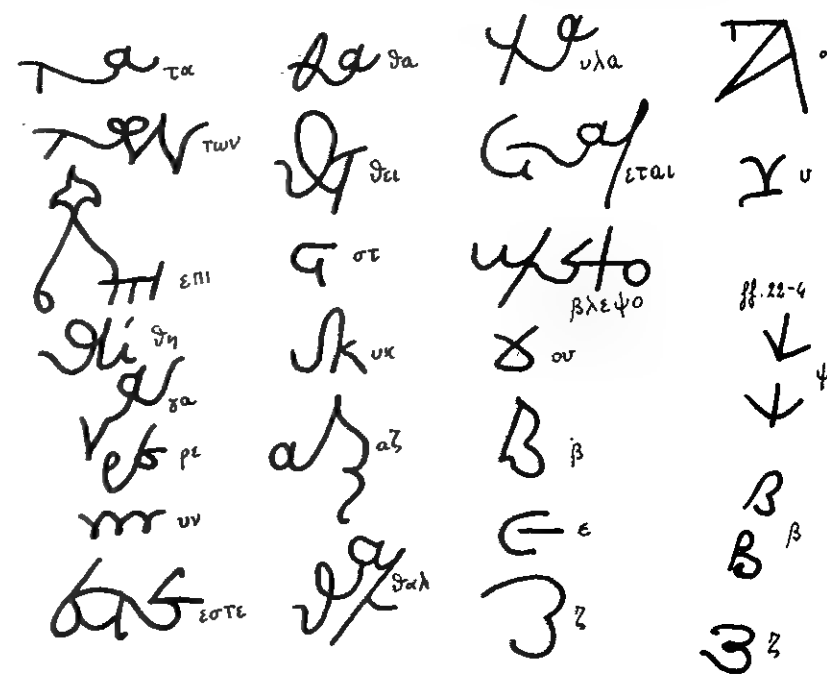 τα
των
επι
θη
γα
ρε
υν
εστε
θα
θει
στ
υκ
αζ
θαλ
υλα
εται
βλεψο
ου
β
ε
ζ
ο
υ
ff. 22-4
ψ
β
ζ